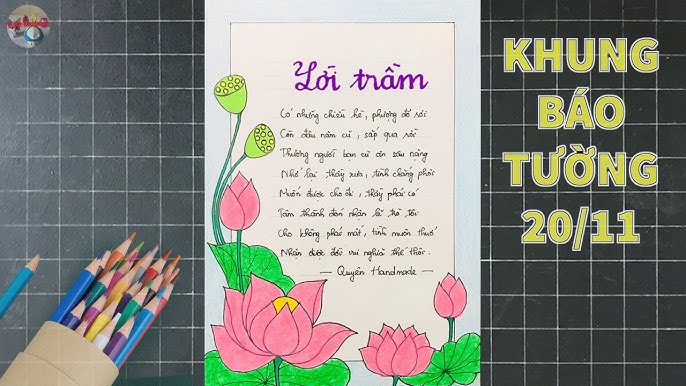 Lời trầm
Có những chiều hè, phượng đỏ rơi
Còn đâu năm cũ, sắp qua rồi
Thương người bạn cũ ơn sâu nặng
Nhớ lại thầy xưa, tình chẳng phôi
Muốn được cho đi, thầy phải có
Tâm thành đón nhận lẽ trò tôi
Cho không phai mất, tình muôn thuở
Nhận được đời vui nghĩa thế thôi.
— Quyên Handmade —
KHUNG
BÁO
TƯỜNG
20/11